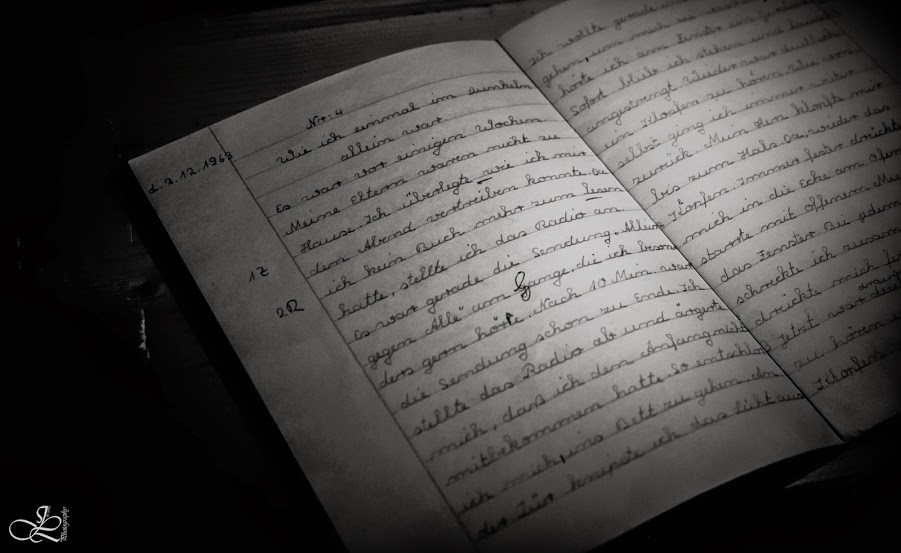 Nr: 4
d. 3.12.1963
Wie ich einmal im Dunkeln
allein war
Es war vor einigen Wochen
Meine Eltern waren nicht zu
Hause. Ich überlegte wie ich mir
den Abend vertreiben konnte. Da
ich kein Buch mehr zum lesen
hatte, stellte ich das Radio an
Es war gerade die Sendung „Allein
gegen Alle" am Gange, di ich beson
G
1Z
ders gern hörte. Nach 10 Min. war
2R
die Sendung schon zu Ende. Ich
stellte das Radio ab und ärgerte
mich, daß ich den Anfang nicht
mitbekommen hatte. So entschlos
ich mich, ins Bett zu gehen. An
der Tür knipste ich das Licht aus
Ich wollte gerade
gehen, um mich zu
hörte ich am Fenster im
Sofort blieb ich stehen und
angestrengt. Wieder war deutlich
ein Klopfen zu hören. Wie von
selbst ging ich immer weiter
zurück. Mein Herz klopfte mir
bis zum Hals. Da, wieder das
Klopfen. Immer fester drückte
mich in die Ecke am Ofen
starrte mit offenem Mu
das Fenster. Bei jedem
schreckte ich zusam
drückte mich fe
Jetzt war deut
zu hören
Klopfen
JL
Photography